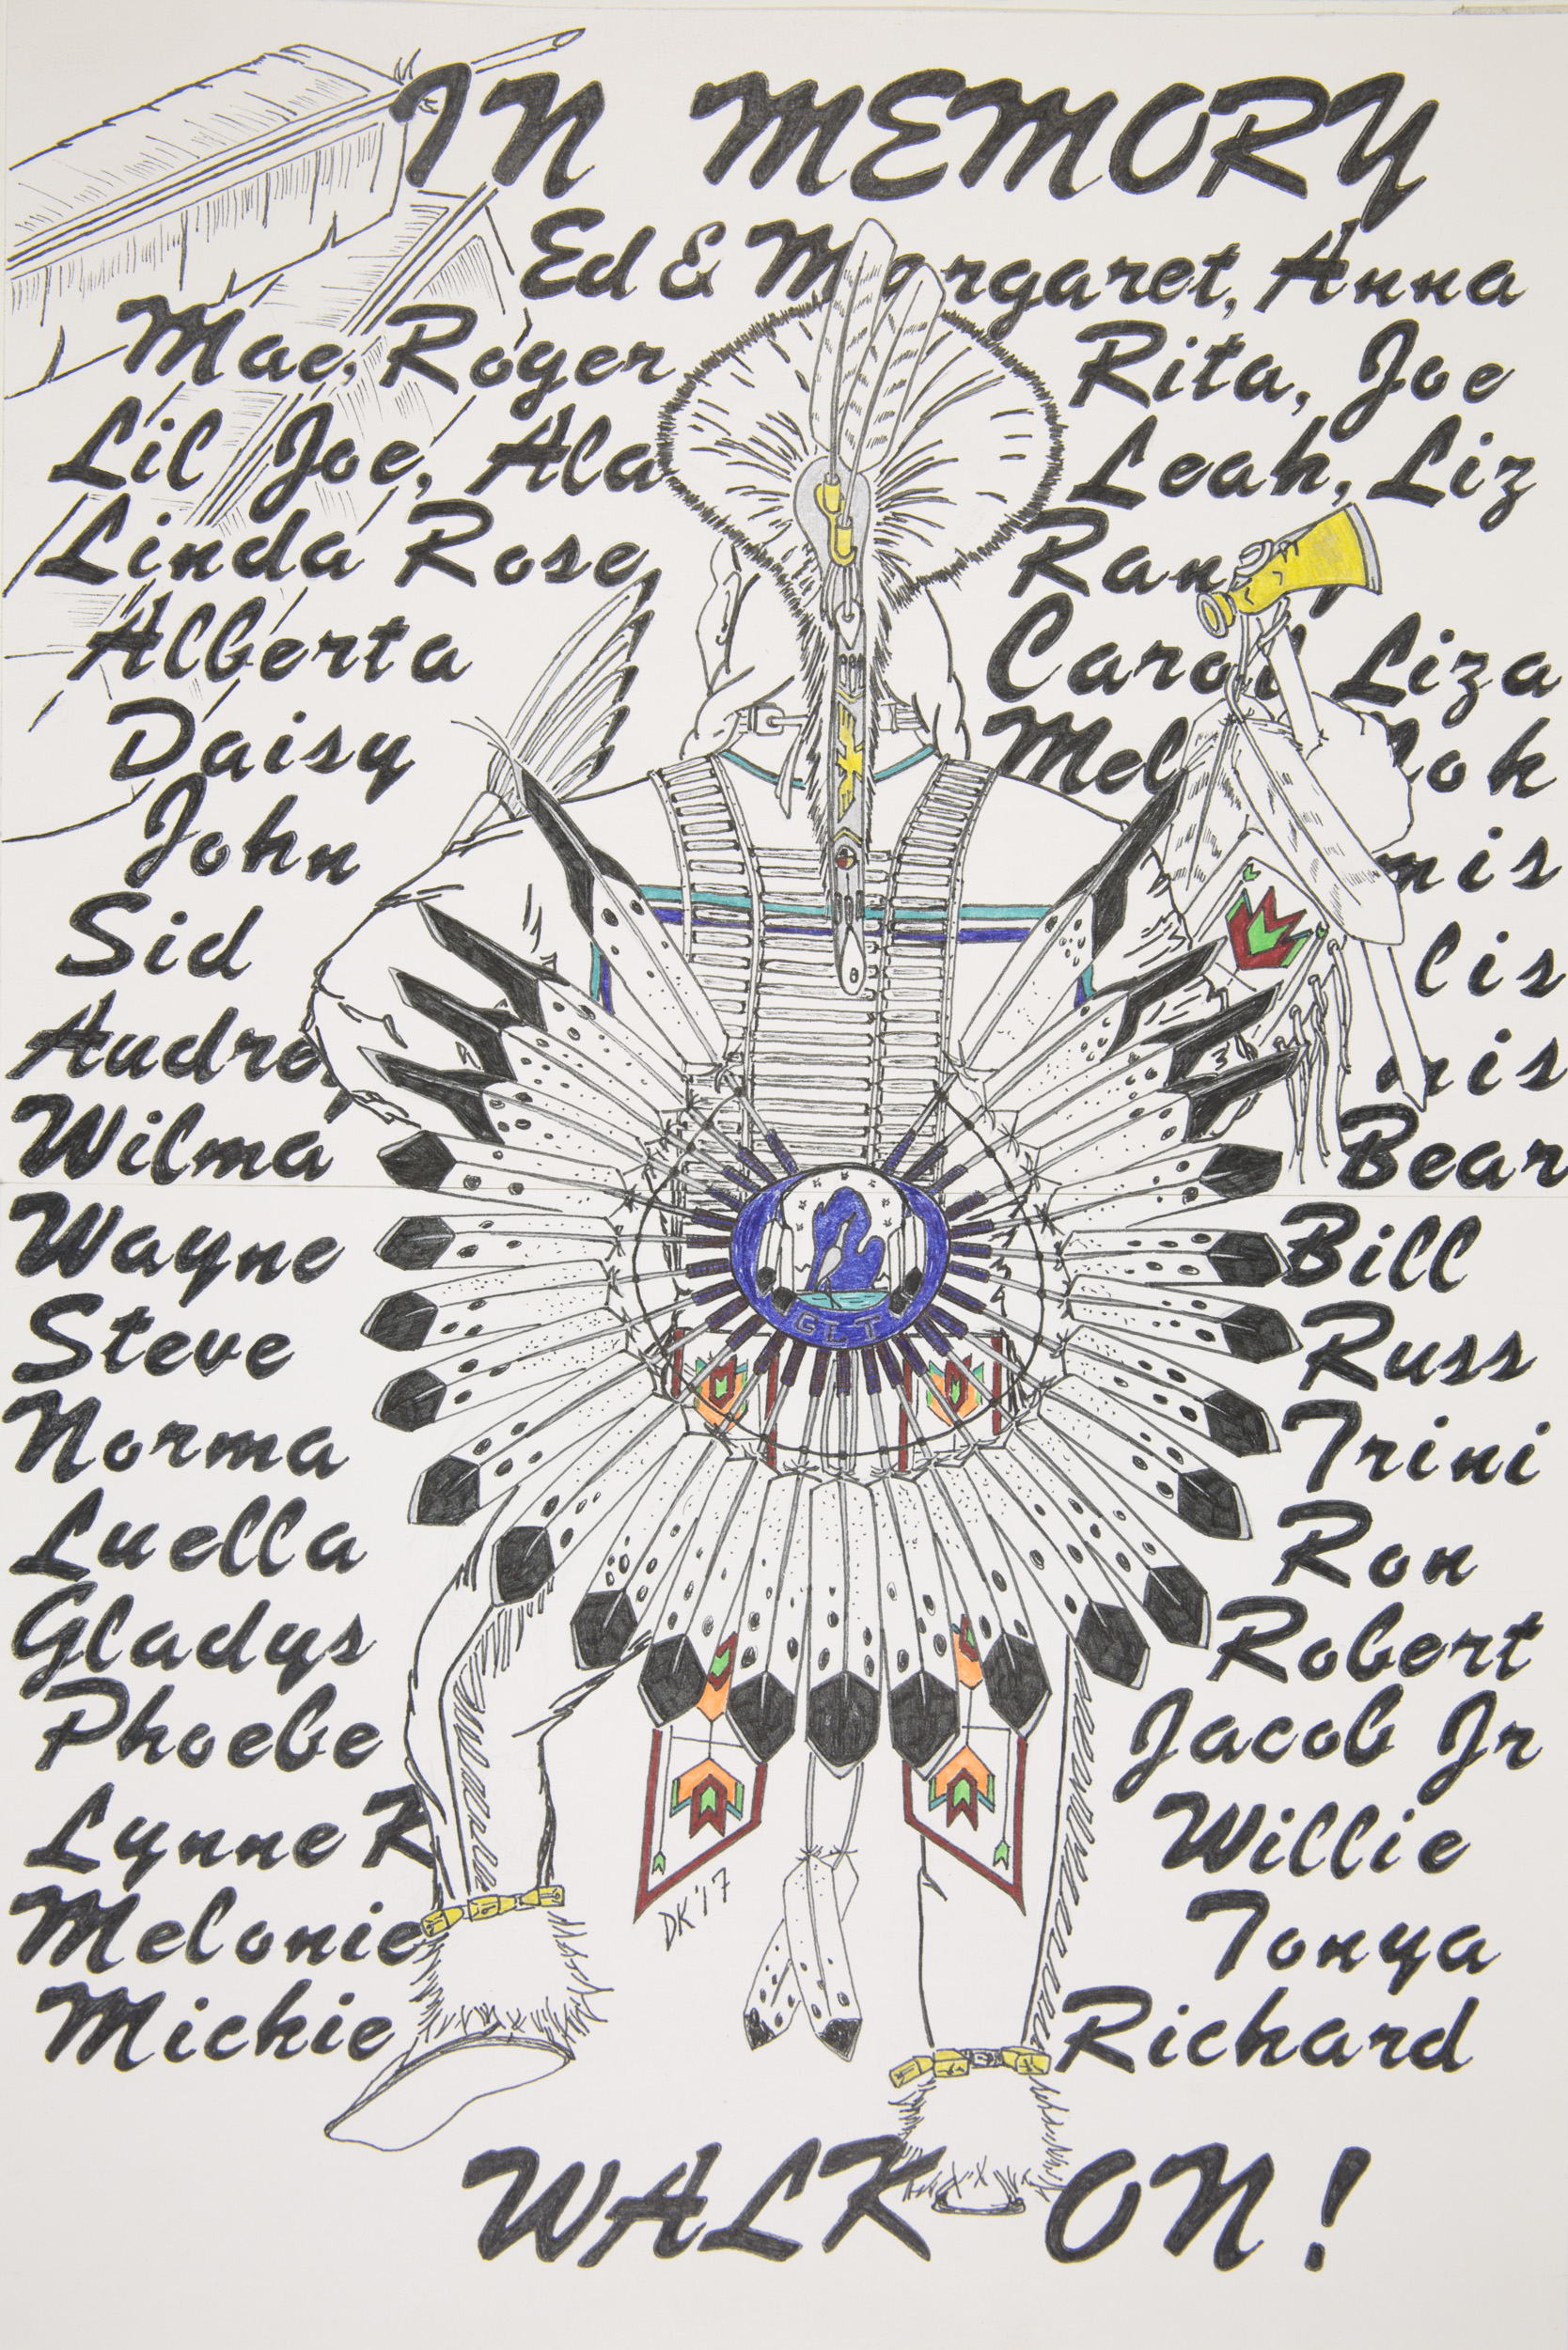 IN MEMORY
Ed & Margaret, Anna
Mae, Roger Rita, Joe
Lil Joe, Ala Leah, Liz
Linda Rose
Alberta Carol Liza
Daisy Mel
John
Sid
Audrey
Wilma Bear
Wayne Bill
Steve Russ
Norma Trini
Luella Ron
Gladys Robert
Phoebe Jacob Jr
Lynne K Willie
Melonie Tonya
Michie Richard
GLT
DK '17
WALK ON!